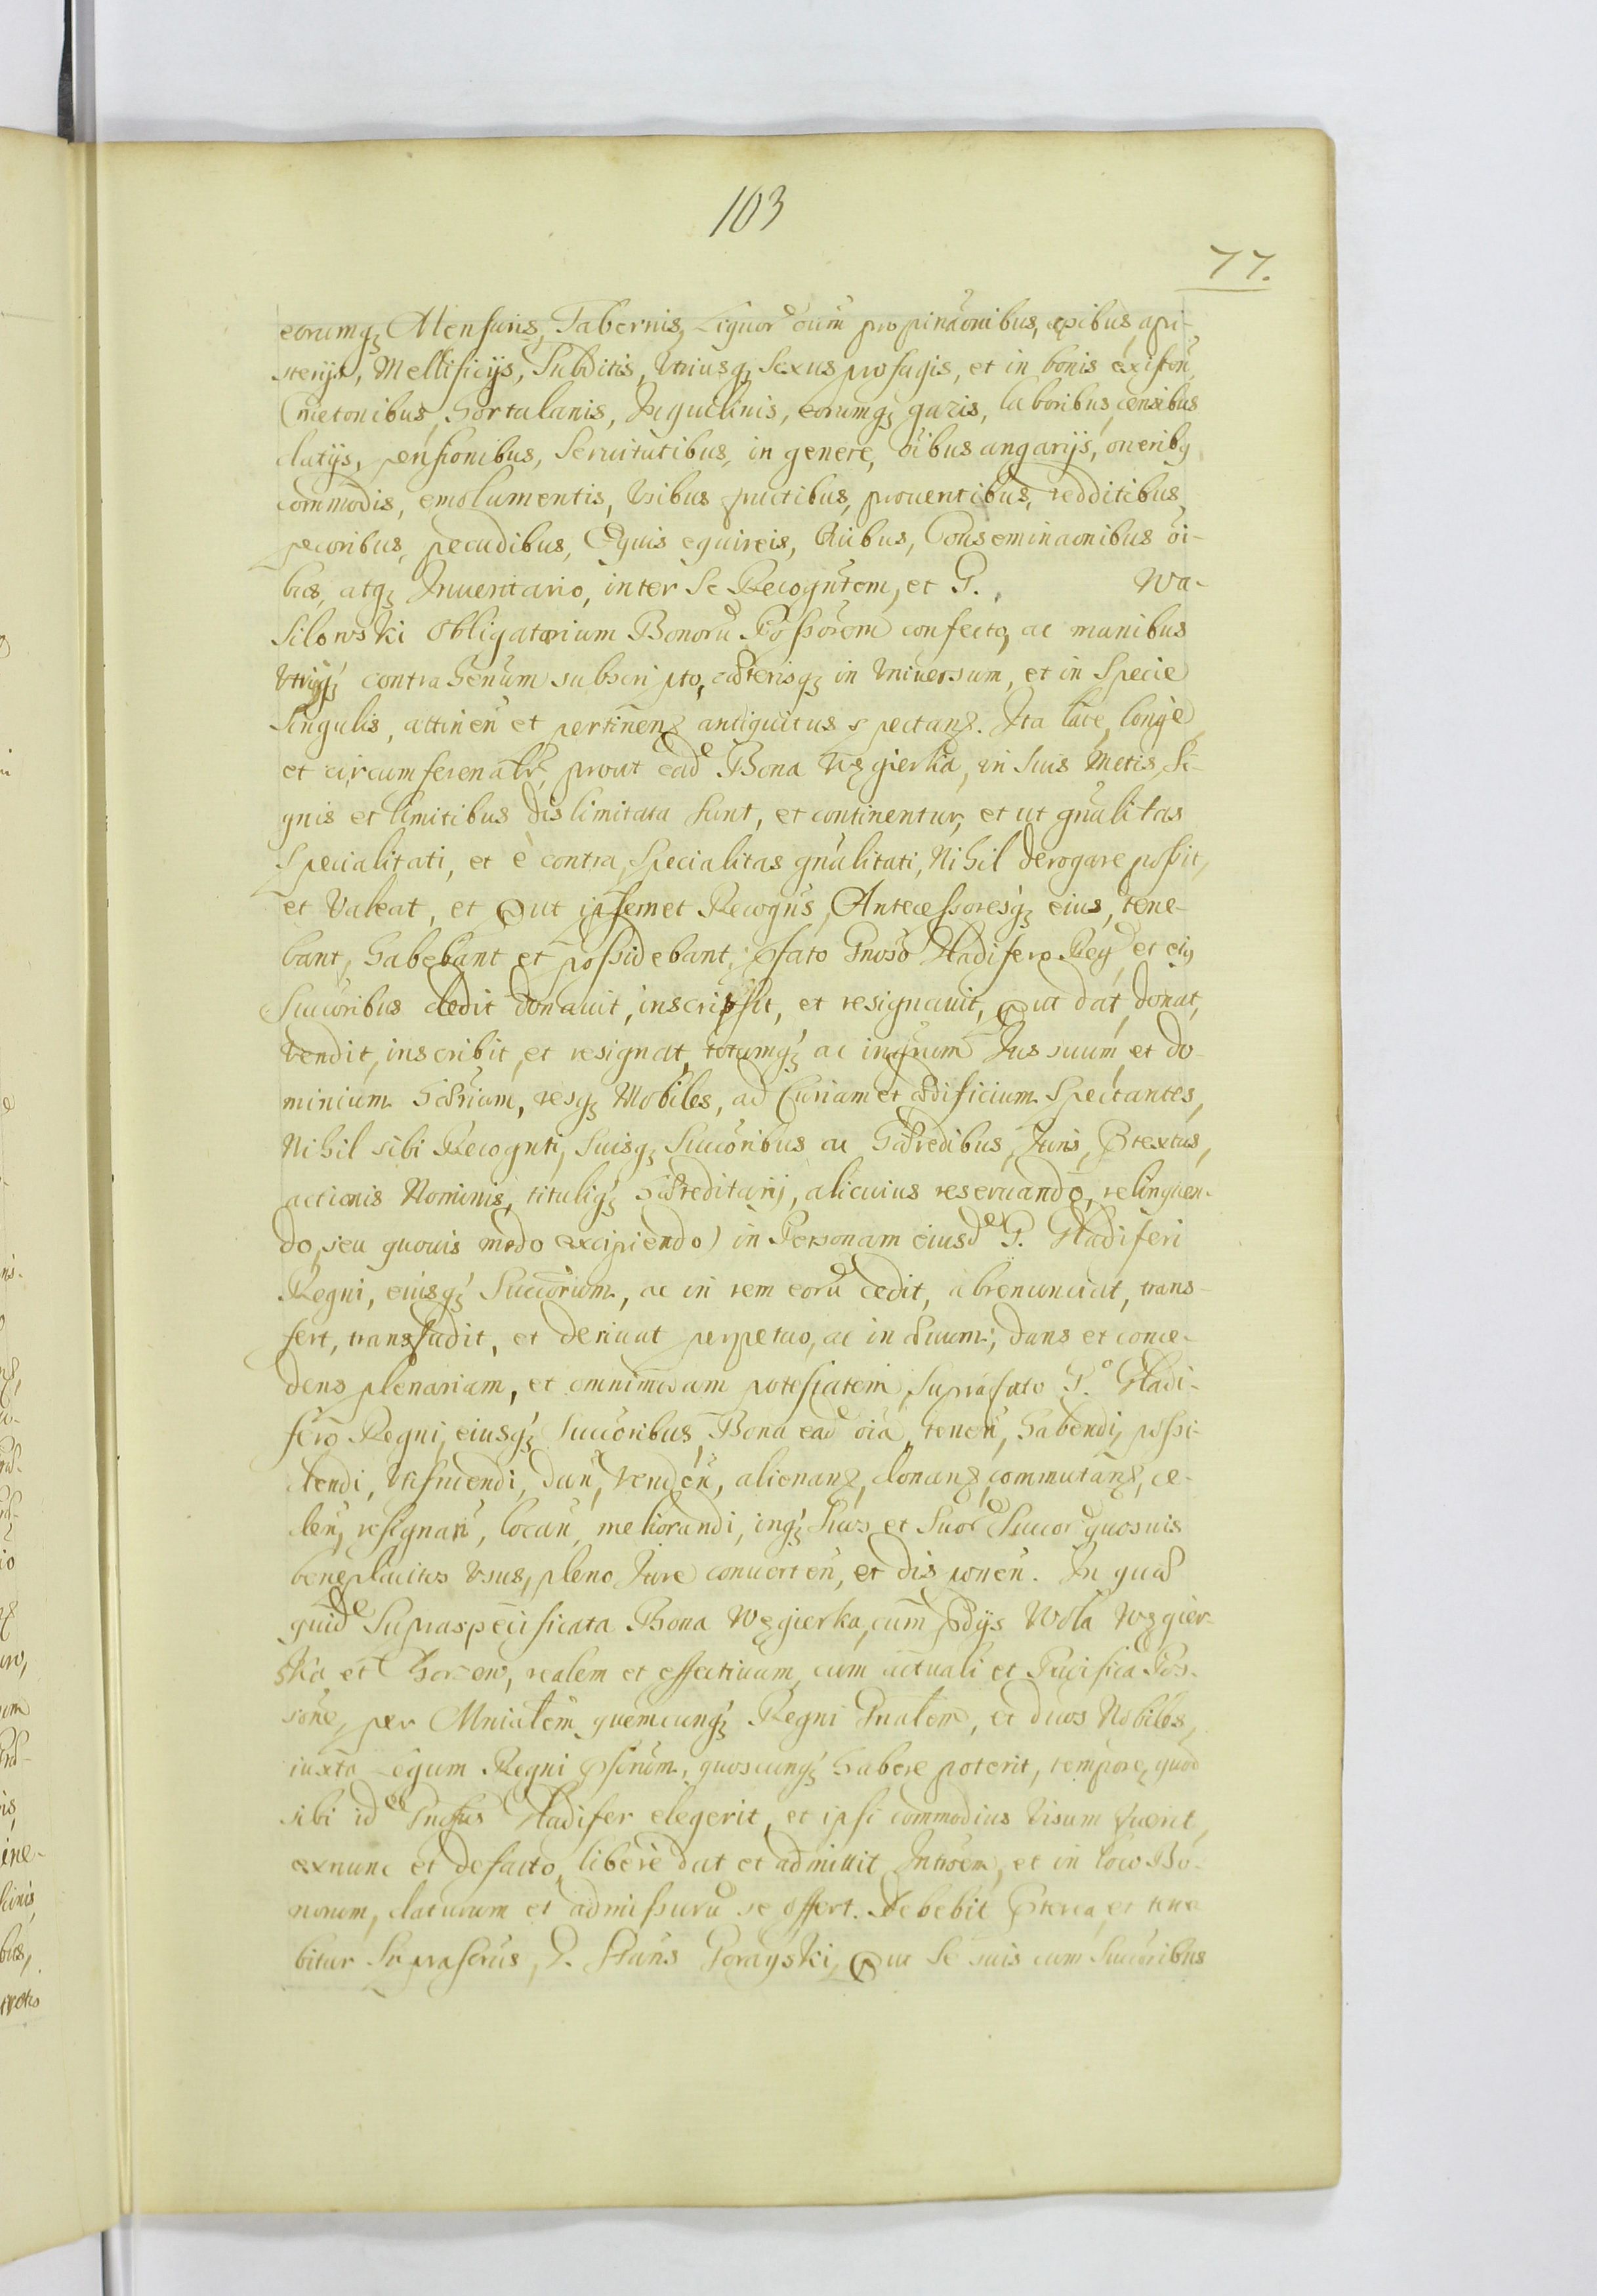 103
77.
eorumq₃ Mensuris, Tabernis, Liquor͂ cum propinaõnibus, apibus, api-
sterijs, Mellificijs, Subditis, Vtriusq₃ Sexus profugis, et in bonis existen̄,
Cmetonibus, Hortulanis, Inquilinis, eorumq₃ gazis, laboribus, censibus
datijs, pensionibus, Seruitutibus, in genere, oībus angarijs, oneribꝫ
commodis, emolumentis, Vsibus fructibus, prouentibus, redditibus
pecoribus, pecudibus, Equis equireis, Ouibus, Conseminaõnibus oī-
bus, atq₃ Inuentario, inter Se Recognt̄em, et G. Wa-
silowski Obligatorium Bonoru͂ Possōrem confecto, ac manibus
Vtriq₃ contrahen̄um subscripto, cæterisq₃ in Vniuersum, et in Specie
Singulis, attinen̄ et pertinen̄ antiquitus spectan̄. Ita late, longè
et circumferenalr͂, prout ead͂ Bona Węgierka, in Suis Metis, Si-
gnis et limitibus dislimitata Sunt, et continentur, et ut gn̄alitas
Specialitati, et è contra, Specialitas gn̄alitati, Nihil derogare possit,
et Valeat, et ꝓut ipsemet Recogn̄s, Antecessoresq₃ eius, tene-
bant, habebant et possidebant, Pfato Gnoso Gladifero Reg͂ et eiꝫ
Succōribus dedit donauit, inscripsit, et resignauit, ꝓut dat, donat,
Vendit, inscribit, et resignat, totumq₃ ac integrum Jus suum, et do-
minium hær̄ium, resq₃ Mobiles, ad Curiam et ædificium Spectantes,
Nihil sibi Recognt̄i, Suisq₃ Succōribus ac Hæredibus, Juris, Ptextus,
actionis Nominis, tituliq₃ hæreditarij, alicuius reseruando, relinquen-
do, seu quouis modo excipiendo) in Personam eiusd͂ G. Gladiferi
Regni, eiusq₃ Succōrum, ac in rem eoru͂ cedit, abrenunciat, trans-
fert, transfudit, et deriuat perpetuo, ac in æuum; dans et conce-
dens plenariam, et omnimodam potestatem Supràfato Gº. Gladi-
fero Regni, eiusq₃ Succōribus, Bona ead͂ oīa, tenen̄, habendi, possi-
dendi, Vtifruendi, dan̄, Venden̄, alienan̄, donan̄, commutan̄, ce-
den̄, resignan̄, locan̄, meliorandi, inq₃ Suos et Suor͂ Succor͂ quosuis
beneplacitos Vsus, pleno Iure conuerten̄, et disponen̄. In quæ
quid͂ Supraspecificata Bona Węgierka, cum Pdijs Wola Węgier-
ska et Chorzew, realem et effectiuam, cum actuali et Pacifica Pos-
sōne, per Mnialem quemcunq₃ Regni Gn̄alem, et duos Nobiles,
iuxta Legum Regni Pscrum, quoscunq₃ habere poterit, tempore, quod
sibi id͂ Gnosus Gladifer elegerit, et ipsi commodius Visum fuerit,
exnunc et defacto, liberè dat et admittit Introem, et in loco Bo-
norum, daturum et admissuru͂ se offert. Debebit Pterea, et tene
bitur Suprascrus, G. Stan̄s Gorayski, ꝓut Se suis cum Succōribus